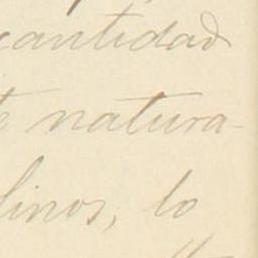 cantidad
natura-
linos, lo